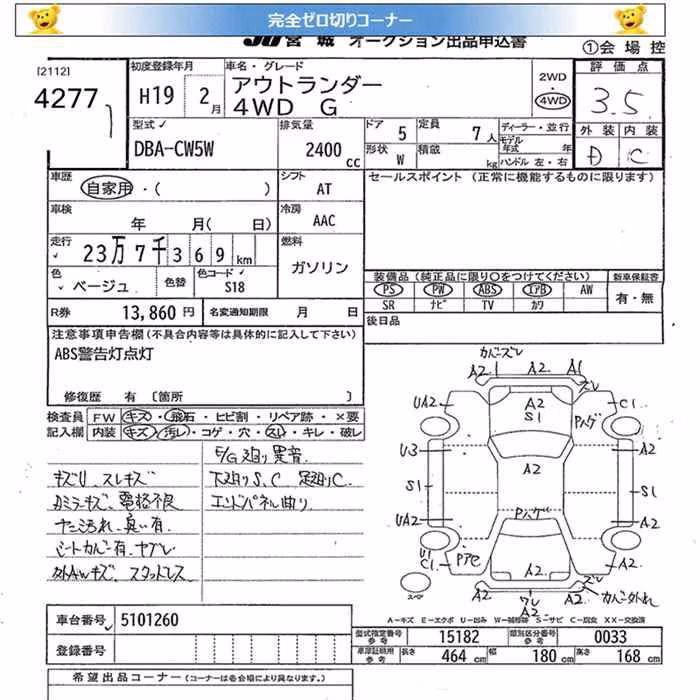 完全ゼロ切りコーナー
JU宮城 オークション出品申込書
①会場控
[2112]
4277
初度登録年月
H19 2月
車名・グレード
アウトランダー
4WD G
2WD
・
4WD
評価点
3.5
外装 内装
D C
型式
DBA-CW5W
排気量
2400cc
ドア 5
定員 7人
ディーラー・並行
形状 W
積載 kg
モデル年式 年
ハンドル 左・右
車歴
自家用・( )
シフト AT
セールスポイント (正常に機能するものに限ります)
車検
年 月( 日)
冷房 AAC
走行
23万7千369km
燃料 ガソリン
色
ベージュ
色替
色コード
S18
装備品(純正品に限り○をつけてください)
新車保証書
PS PW ABS エアB AW
SR ナビ TV カワ
有・無
R券 13,860円
名変通知期限 月 日
後日品
注意事項申告欄(不具合内容等は具体的に記入して下さい)
ABS警告灯点灯
修復歴 有 [箇所 ]
検査員記入欄
FW キズ・飛石・ヒビ割・リペア跡・×要
内装 キズ・汚レ・コゲ・穴・スレ・キレ・破レ
E/G廻り異音
キズU スレキズ
下廻りS、C 足廻りC
カドミラーキズ、電格不良
エンドパネル曲り
ヤニ汚れ、臭い有
シートカバー有、ヤブレ
カバーズレ
A2 A2 A1
ズレ
UA2 A2 S1 Pハゲ C1
U3 A2 A2
S1 S1
UA2 Pハゲ A2
U1 C1 Pアセ A2 A2
ズレ
A2 ワレ A2 A2
カバー外れ
スペア
A-キズ E-エクボ U-凹み W-補修跡 S-サビ C-腐食 XX-交換済
車台番号 5101260
登録番号
型式指定番号 参考 15182
類別区分番号 参考 0033
車庫証明用 参考
長さ 464cm
幅 180cm
高さ 168cm
希望出品コーナー(コーナーは各会場により異なります。)